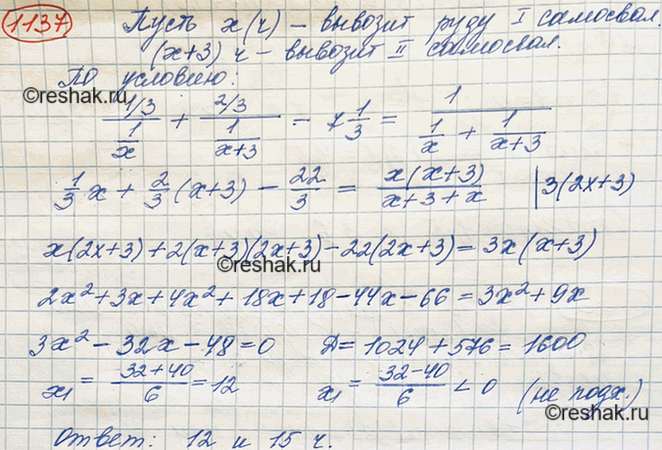 1137 Пусть x(ч) – вывозит руду I самосвал
(x+3) ч – вывозит II самосвал.
По условию:
©reshak.ru
(1/3)/(1/x) + (2/3)/(1/(x+3)) – 7 1/3 = 1/(1/x + 1/(x+3))
©reshak.ru
1/3 x + 2/3 (x+3) – 22/3 = x(x+3)/(x+3+x) | 3(2x+3)
x(2x+3)+2(x+3)(2x+3)–22(2x+3)=3x(x+3)
©reshak.ru
2x²+3x+4x²+18x+18–44x–66=3x²+9x
3x²–32x–48=0 Д=1024+576=1600
x₁ = (32+40)/6 = 12 x₁ = (32–40)/6 < 0 (не подх.)
©reshak.ru
©reshak.ru
Ответ: 12 и 15 ч.